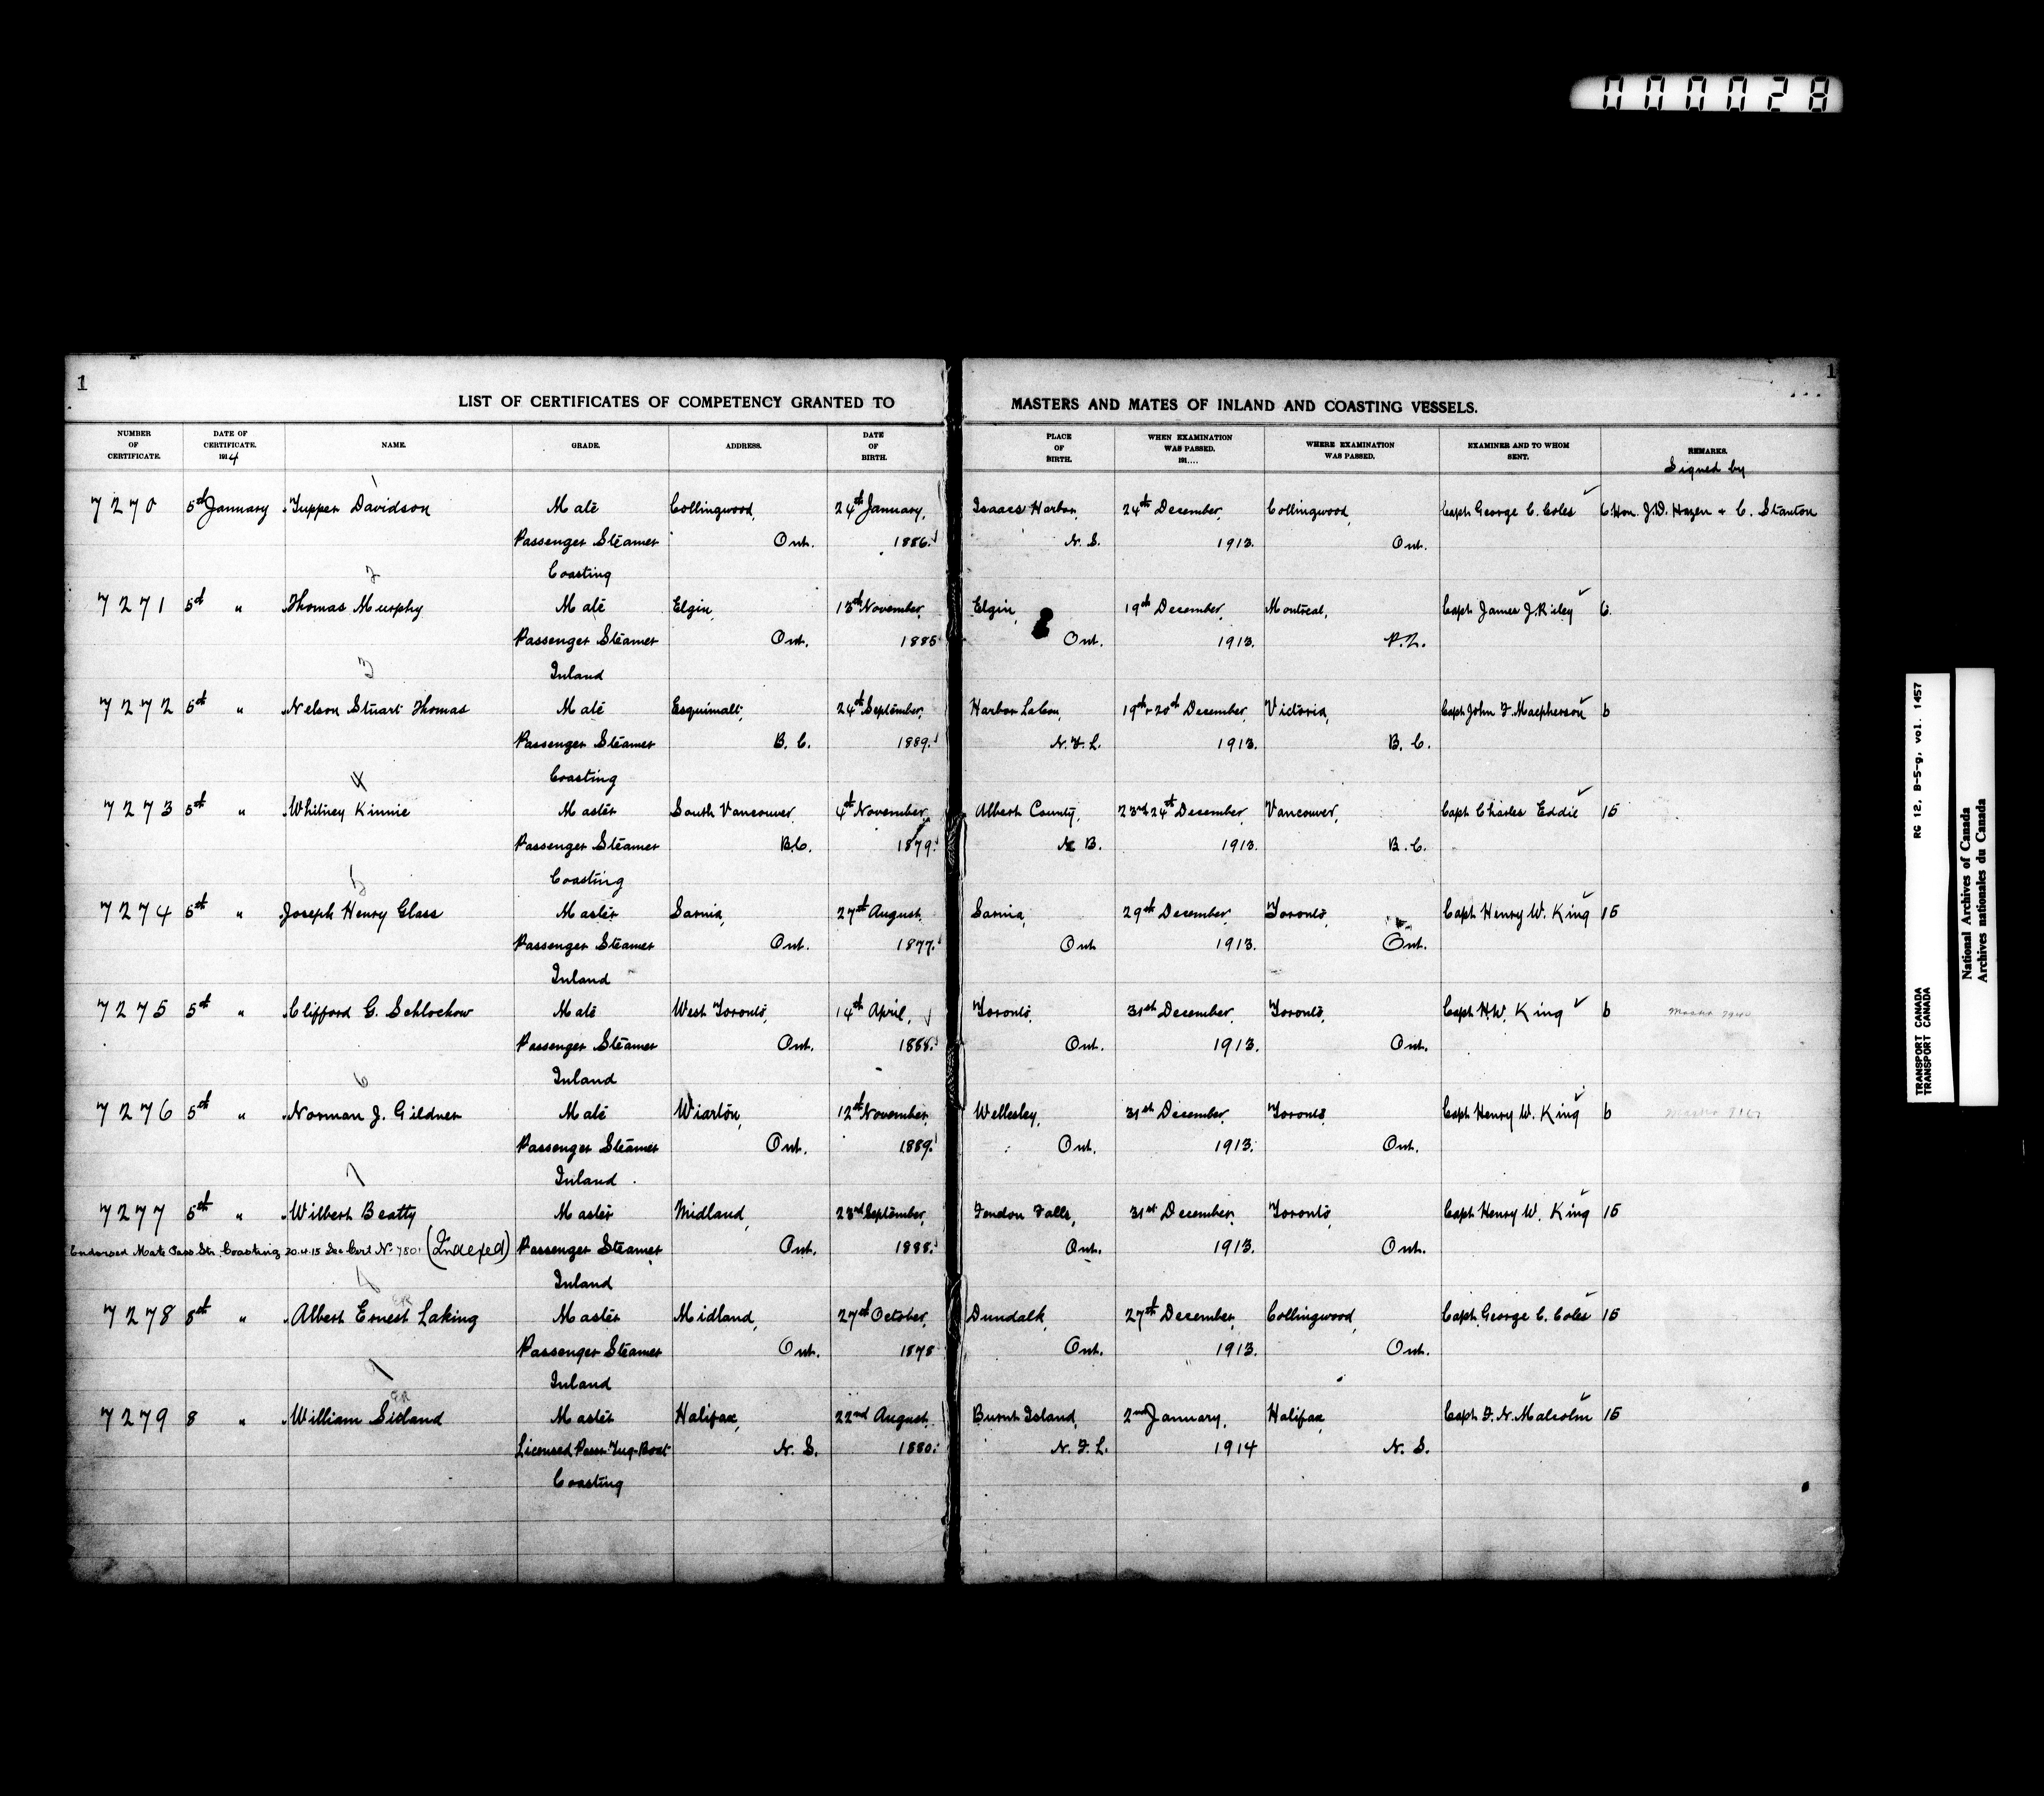 000028
1
1
LIST OF CERTIFICATES OF COMPETENCY GRANTED TO MASTERS AND MATES OF INLAND AND COASTING VESSELS.
NUMBER OF CERTIFICATE. DATE OF CERTIFICATE. 1914 NAME. GRADE. ADDRESS. DATE OF BIRTH. PLACE OF BIRTH. WHEN EXAMINATION WAS PASSED. 191.... WHERE EXAMINATION WAS PASSED. EXAMINER AND TO WHOM SENT. REMARKS.
Signed by
1
7270 5th January Tupper Davidson Mate Collingwood, 24th January, Isaacs Harbor, 24th December, Collingwood, Capt. George C. Coles 6 Hon. J.D. Hazen + C. Stanton
Passenger Steamer Ont. 1886. N. S. 1913. Ont.
Coasting
2
7271 5th " Thomas Murphy Mate Elgin, 13th November, Elgin, 19th December, Montreal, Capt. James J. Riley 6
Passenger Steamer Ont. 1885 Ont. 1913. P.Q.
Inland
3
7272 5th " Nelson Stuart Thomas Mate Esquimalt, 24th September, Harbor LaCou, 19th + 20th December, Victoria, Capt. John F. Macpherson 6
Passenger Steamer B. C. 1889. N. F. L. 1913. B. C.
Coasting
4
7273 5th " Whitney Kinnie Master South Vancouver, 4th November, Albert County, 23rd 24th December, Vancouver, Capt. Charles Eddie 15
Passenger Steamer B.C. 1879. N. B. 1913. B. C.
Coasting
5
7274 5th " Joseph Henry Glass Master Sarnia, 27th August, Sarnia, 29th December, Toronto, Capt. Henry W. King 15
Passenger Steamer Ont. 1877. Ont 1913. Ont.
Inland
7275 5th " Clifford G. Schlochow Mate West Toronto, 14th April, Toronto, 31st December, Toronto, Capt. H.W. King 6
Passenger Steamer Ont. 1888. Ont. 1913. Ont.
Inland
6
7276 5th " Norman J. Gildner Mate Wiarton, 12th November, Wellesley, 31st December, Toronto, Capt. Henry W. King 6
Passenger Steamer Ont. 1889. Ont. 1913. Ont.
Inland
7
7277 5th " Wilbert Beatty Master Midland, 23rd September, Fendon Falls, 31st December, Toronto, Capt. Henry W. King 15
Endorsed Mate Pass Str. Coasting 20.4.15 See Cert No 7801 (Indexed) Passenger Steamer Ont. 1888. Ont. 1913. Ont.
Inland
8
7278 8th " Albert Ernest Laking Master Midland, 27th October, Dundalk, 27th December, Collingwood, Capt. George C. Coles 15
Passenger Steamer Ont. 1878 Ont. 1913. Ont.
Inland
7279 8 " William Sioland Master Halifax, 22nd August, Burnt Island, 2nd January, Halifax, Capt. F. N. Malcolm 15
Licensed Pass. Tug-Boat N. S. 1880. N. F. L. 1914 N. S.
Coasting
TRANSPORT CANADA RG 12, B-5-g, vol. 1457
TRANSPORT CANADA
National Archives of Canada
Archives nationales du Canada